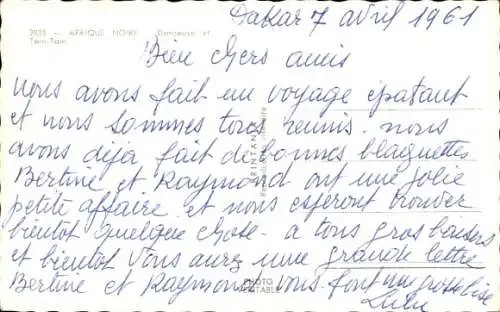 Dakar 7 avril 1961
2153 — AFRIQUE NOIRE - Danseuse et
Tam-Tam
Bien chers amis
nous avons fait un voyage épatant
et nous sommes tous réunis. nous
avons déja fait de bonnes blaguettes
Bertine et Raymond ont une jolie
petite affaire et nous esperont trouver
bientot quelque chose. a tous gros baisers
et bientot vous aurez une grande lettre
Bertine et Raymond vous font une grosse bise
PHOTO
VÉRITABLE